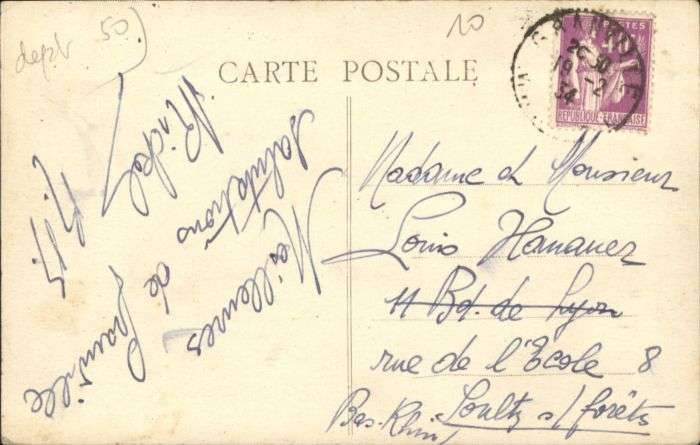 dept 50
10
CARTE POSTALE
GRANVILLE
20 30
19 -2
34
POSTES
REPUBLIQUE-FRANÇAISE
Meilleures
salutations
de Granville
Madame et Monsieur
Louis Hanauer
11 Bd. de Lyon
rue de l'Ecole 8
Soultz s/forêts
Bas-Rhin